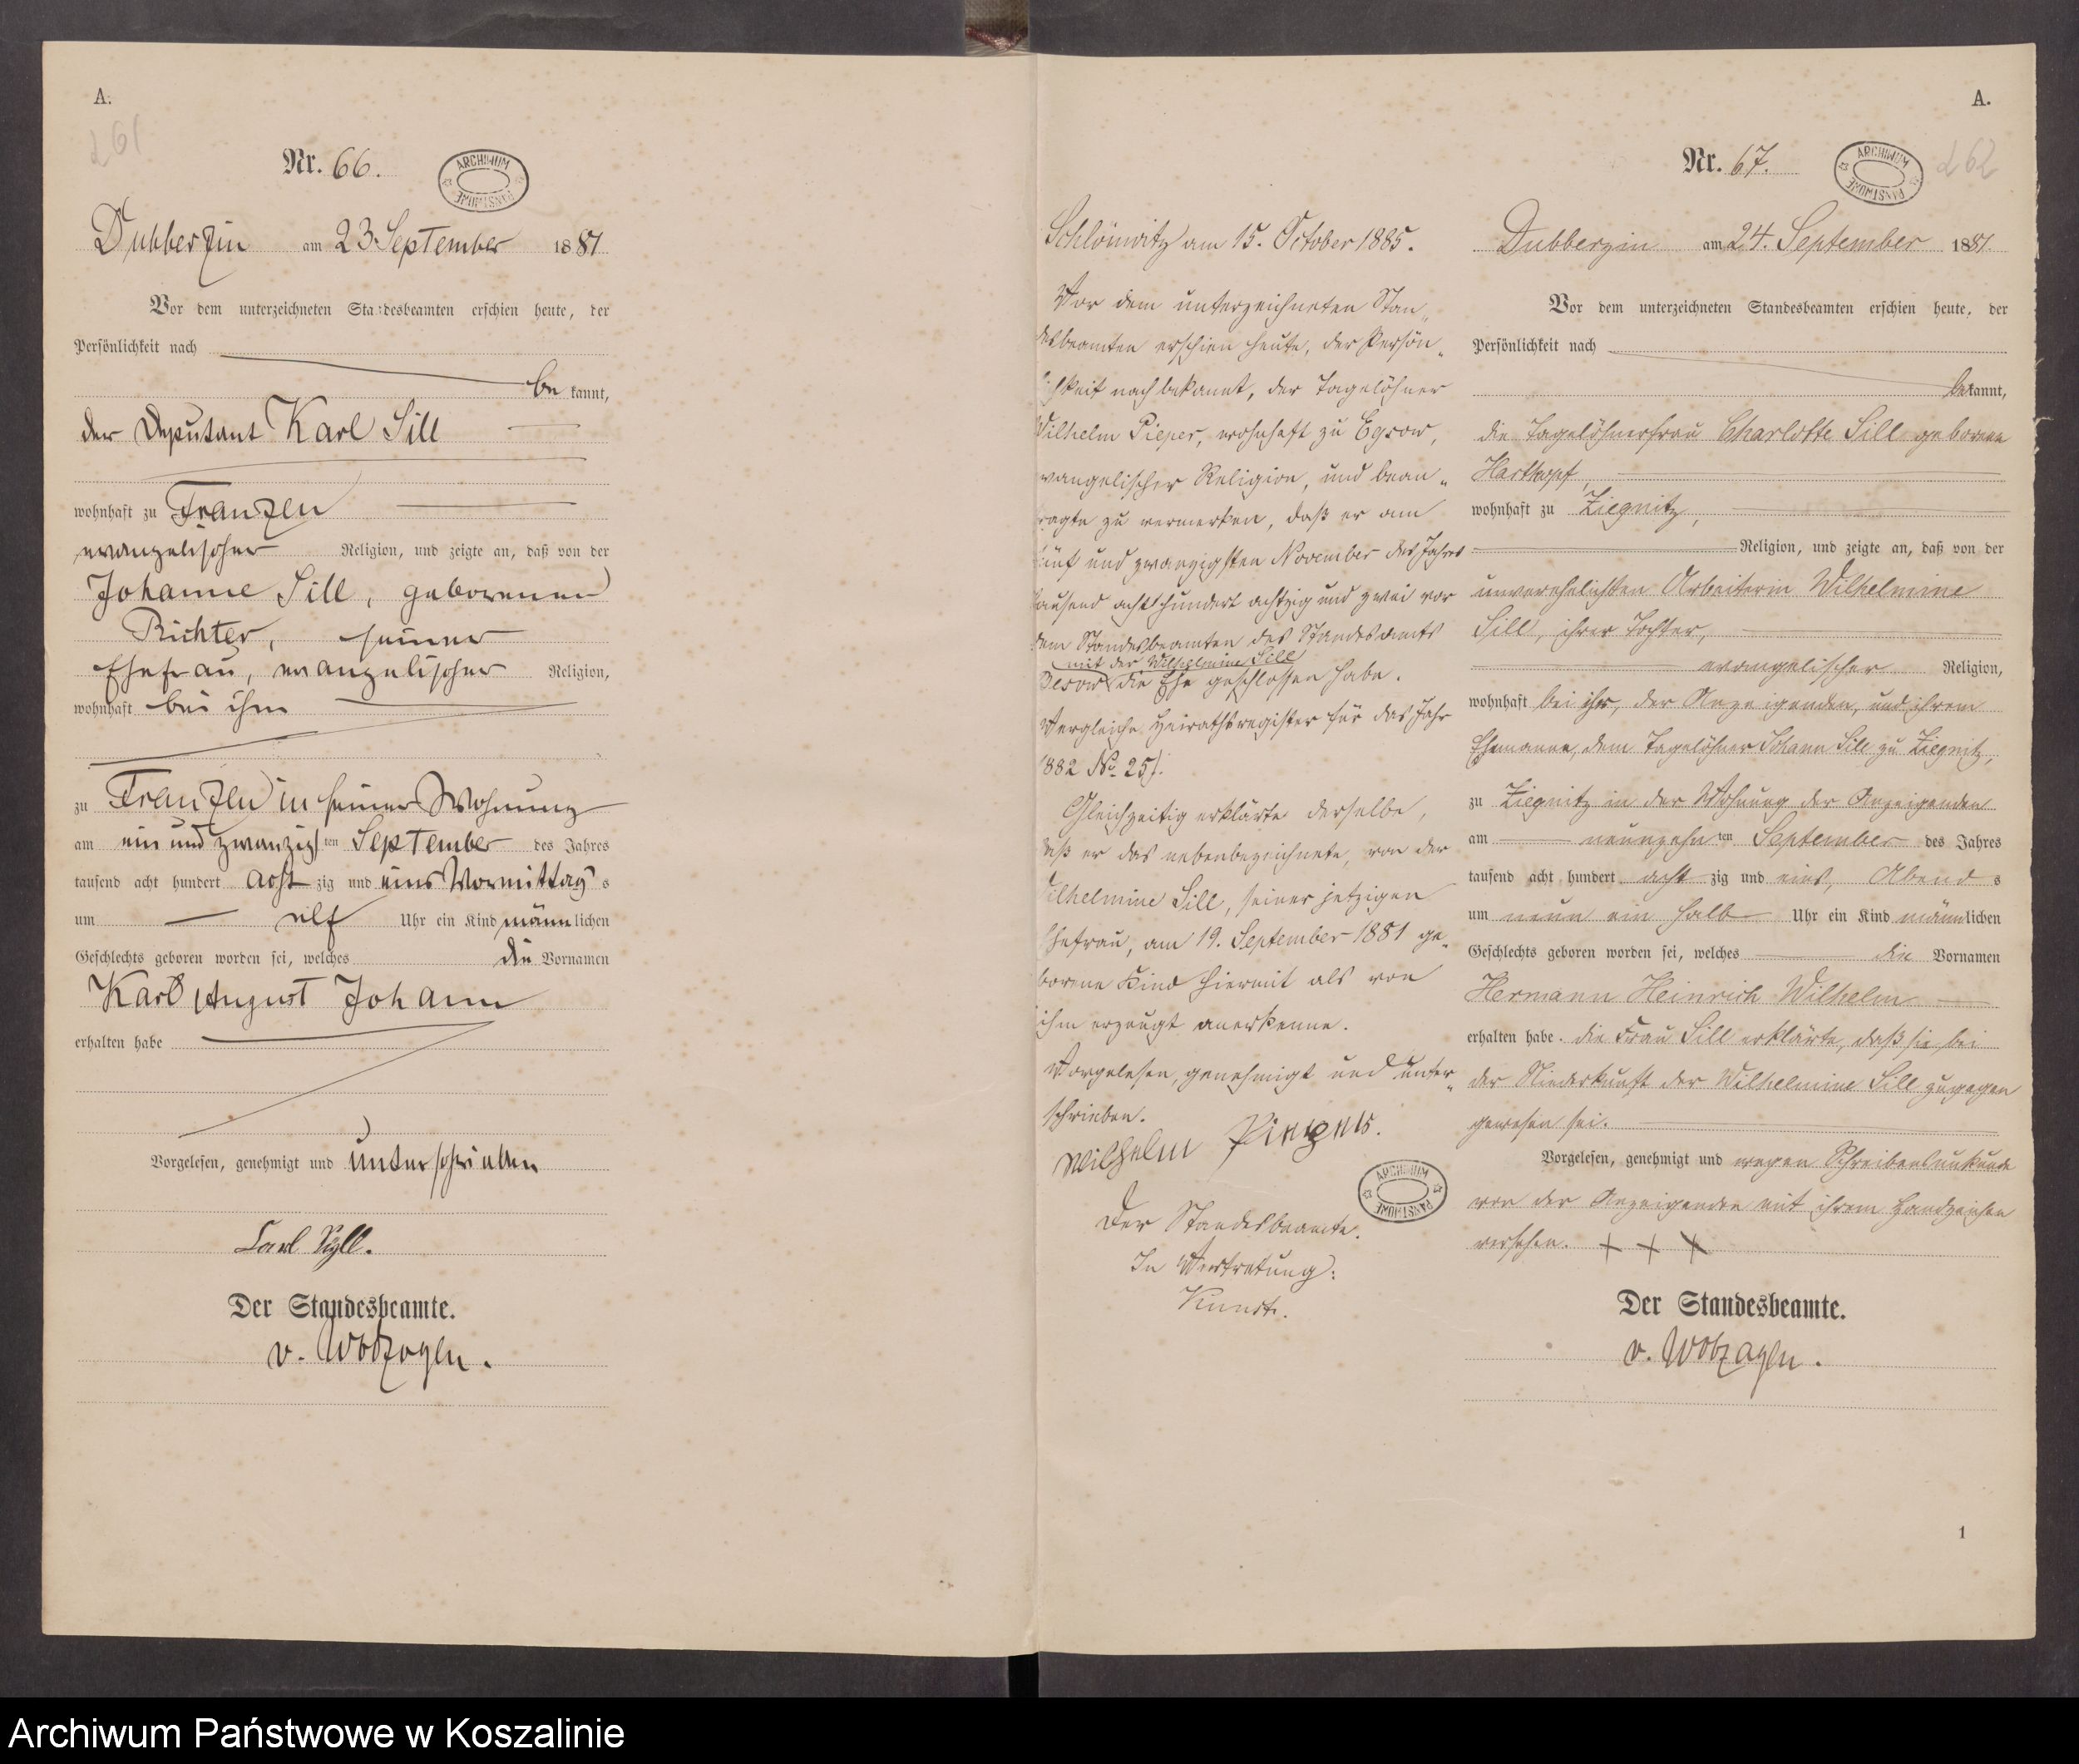 A.
261
Nr. 66.
ARCHIWUM PAŃSTWOWE
Dubberzin am 23 September 1881
Vor dem unterzeichneten Standesbeamten erschien heute, der
Persönlichkeit nach
be kannt,
der Deputant Karl Sill
wohnhaft zu Franzen
evangelischer Religion, und zeigte an, daß von der
Johanne Sill, geborenen
Richter, seiner
Ehefrau, evangelischer Religion,
wohnhaft bei ihm
zu Franzen in seiner Wohnung
am ein und zwanzigsten September des Jahres
tausend acht hundert acht zig und eins Vormittags
um elf Uhr ein Kind männlichen
Geschlechts geboren worden sei, welches die Vornamen
Karl August Johann
erhalten habe
Vorgelesen, genehmigt und unterschrieben
Carl Syll.
Der Standesbeamte.
v. Wolzogen.
Schlönwitz am 15. October 1885.
Vor dem unterzeichneten Stan„
desbeamten erschien heute, der Persön„
lichkeit nach bekannt, der Tagelöhner
Wilhelm Pieper, wohnhaft zu Egsow,
evangelischer Religion, und bean„
tragte zu vermerken, daß er am
fünf und zwanzigsten November des Jahres
tausend acht hundert achtzig und zwei vor
dem Standesbeamten des Standesamts
mit der Wilhelmine Sill
die Ehe geschlossen habe.
Vergleiche Heirathsregister für das Jahr
1882 No 25).
Gleichzeitig erklärte derselbe,
daß er das nebenbezeichnete, von der
Wilhelmine Sill, seiner jetzigen
Ehefrau, am 19. September 1881 ge„
borene Kind hiermit als von
ihm erzeugt anerkenne.
Vorgelesen, genehmigt und unter„
schrieben.
Wilhelm Pieper.
ARCHIWUM PAŃSTWOWE
Der Standesbeamte.
In Vertretung:
A.
Nr. 67.
ARCHIWUM PAŃSTWOWE
262
Dubberzin am 24. September 1881.
Vor dem unterzeichneten Standesbeamten erschien heute, der
Persönlichkeit nach
bekannt,
die Tagelöhnerfrau Charlotte Sill geborene
Hartkopf,
wohnhaft zu Ziegnitz,
Religion, und zeigte an, daß von der
unverehelichten Arbeiterin Wilhelmine
Sill, ihrer Tochter,
evangelischer Religion,
wohnhaft bei ihr, der Anzeigenden, und ihrem
Ehemanne, dem Tagelöhner Johann Sill zu Ziegnitz,
zu Ziegnitz in der Wohnung der Anzeigenden
am neunzehnten September des Jahres
tausend acht hundert acht zig und eins, Abends
um neun ein halb Uhr ein Kind männlichen
Geschlechts geboren worden sei, welches die Vornamen
Hermann Heinrich Wilhelm
erhalten habe. die Frau Sill erklärte, daß sie bei
der Niederkunft der Wilhelmine Sill zugegen
gewesen sei.
Vorgelesen, genehmigt und wegen Schreibensunkunde
von der Anzeigenden mit ihrem Handzeichen
versehen. + + +
Der Standesbeamte.
v. Wolzogen.
1
Archiwum Państwowe w Koszalinie